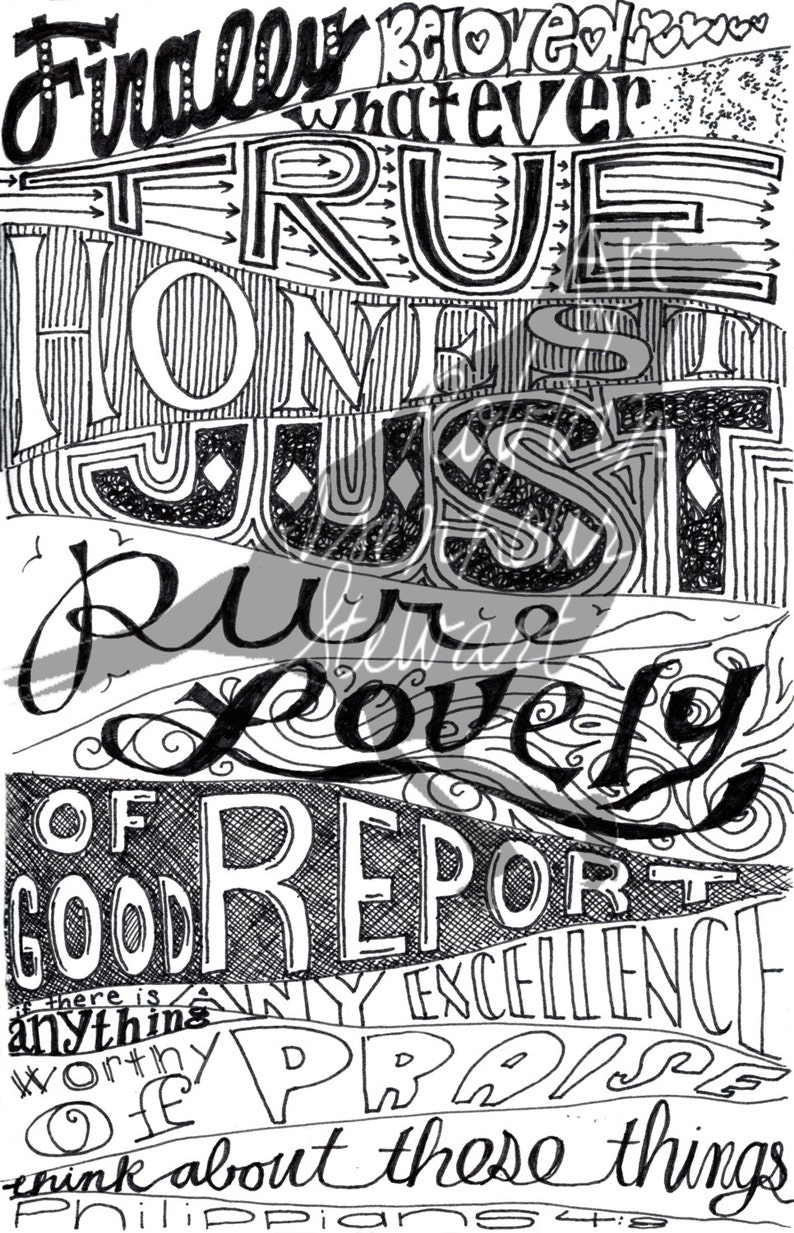 Finally Beloved
whatever is
TRUE
HONEST
JUST
pure
Lovely
OF
GOOD REPORT
if there is ANY EXCELLENCE
anything
worthy
of PRAISE
think about these things
Philippians 4:8
Art
by
Stewart